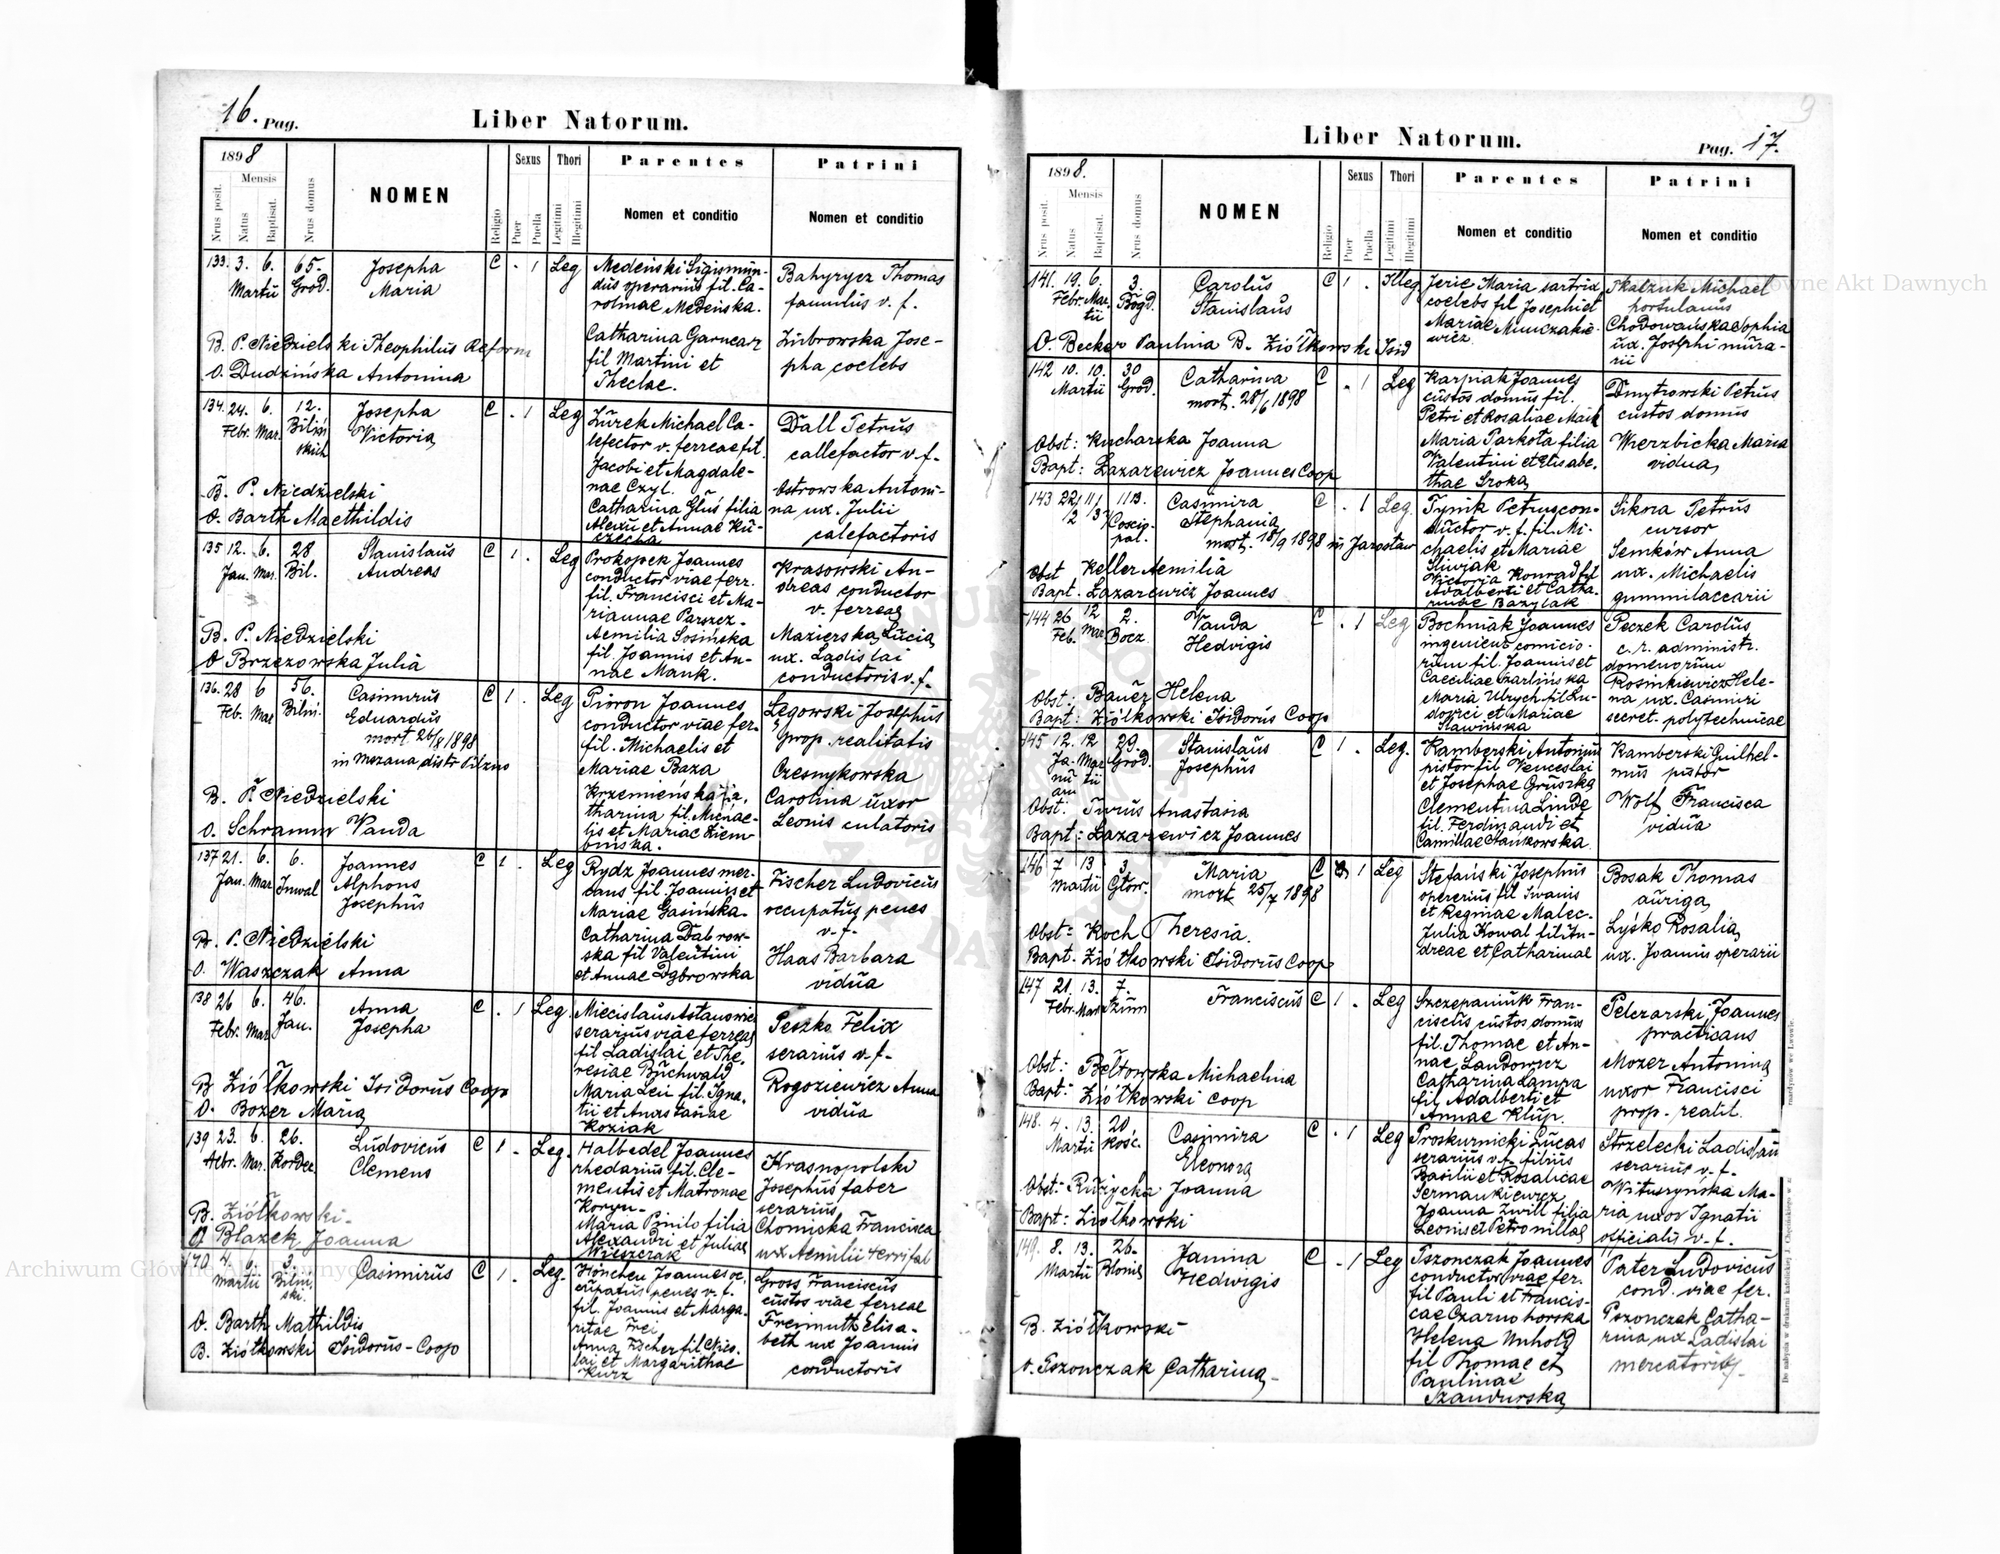 16. Pag.
Liber Natorum.
1898
Mensis
Nrus posit.
Natus
Baptisat.
Nrus domus
NOMEN
Religio
Sexus
Puer
Puella
Thori
Legitimi
Illegitimi
Parentes
Nomen et conditio
Patrini
Nomen et conditio
133. 3. 6. 65. Josepha C . 1 Leg
Martii Grod. Maria
B. P. Niedzielski Theophilus Reform
O. Dudzińska Antonina
Medeński Sigismun-
dus operarius fil. Ca-
rolinae Medeńska.
Catharina Garncarz
fil Martini et
Theclae.
Bahyrycz Thomas
famulus v. f.
Zubrowska Jose-
pha coelebs
134. 24. 6. 12. Josepha C . 1 Leg
Febr. Mar. Biliń Victoria
skich
B. P. Niedzielski
O. Barth Maethildis
Żurek Michael Ca-
lefector v. ferreae fil.
Jacobi et Magdale-
nae Czyl.
Catharina Głuś filia
Alexii et Annae Ku-
czecha
Dall Petrus
callefactor v. f.
Ostrowska Antoni-
na ux. Julii
calefactoris
135 12. 6. 28 Stanislaus C 1 . Leg
Jan. Mar. Bil. Andreas
B. P. Niedzielski
O Brzezowska Julia
Prokopek Joannes
conductor viae ferr.
fil. Francisci et Ma-
riannae Parszez-
Aemilia Sosińska
fil. Joannis et An-
nae Mank.
Krasowski An-
dreas conductor
v. ferreae
Mazierska Lucia
ux. Ladislai
conductoris v. f.
136. 28 6 56. Casimirus C 1 . Leg
Feb. Mar Biliń. Eduardus
mort. 26/X 1898
in Mszana distr Pilzno
B. P. Niedzielski
O. Schramm Vanda
Pioron Joannes
conductor viae fer-
fil. Michaelis et
Mariae Baza
Krzemieńska Ca,
tharina fil. Michae-
lis et Mariae Ziem-
bińska.
Łegowski Josephus
prop. realitatis
Czesnykowska
Carolina uxor
Leonis culatoris
137 21. 6. 6. Joannes C 1 . Leg
Jan. Mar Inwal Alphons
Josephus
B. P. Niedzielski
O. Waszczak Anna
Rydz Joannes mer-
cans fil. Joannis et
Mariae Gasińska-
Catharina Dabrow-
ska fil Valentini
et Annae Dąbrowska
Fischer Ludovicus
occupatus penes
v. f.
Haas Barbara
vidua
138 26 6. 46. Anna C . 1 Leg.
Febr. Mar Jan. Josepha
B Ziółkowski Isidorus Coop
O. Bozer Maria
Miecislaus Astanowicz
serarius viae ferreae
fil Ladislai et The,
resiae Buchwald
Maria Leń fil. Igna-
tii et Anastasiae
Koziak
Peszko Felix
serarius v. f.
Rogoziewicz Anna
vidua
139 23. 6. 26. Ludovicus C 1 . Leg.
Febr. Mar. Kordec. Clemens
B. Ziółkowski-
O Blazek Joanna
Halbedel Joannes
rhedarius fil. Cle-
mentis et Matronae
Koryn-
Maria Pinilo filia
Alexandri et Juliae
Wieszczak
Krasnopolski
Josephus faber
serarius
Chomicka Francisca
ux Aemilii territal
140 4. 6. 3. Casimirus C 1 . Leg.
Martii Biliń,
ski.
O. Barth Mathildis
B. Ziółkowski Isidorus-Coop
Hönchen Joannes oc,
cupatus penes v. f.
fil. Joannis et Marga-
ritae Frei
Anna Fischer fil. Nico-
lai et Margarithae
Kurz
Gross Franciscus
custos viae ferreae
Fremuth Elisa-
beth ux Joannis
conductoris
9
Liber Natorum.
Pag. 17.
1898.
Mensis
Nrus posit.
Natus
Baptisat.
Nrus domus
NOMEN
Religio
Sexus
Puer
Puella
Thori
Legitimi
Illegitimi
Parentes
Nomen et conditio
Patrini
Nomen et conditio
141. 19. 6. 3. Carolus C 1 . Illeg
Febr. Mar. Bogd. Stanislaus
tii
O. Becker Paulina B. Ziółkowski Isid
Jeric Maria sartrix
coelebs fil Josephi et
Mariae Munczakie-
wicz
Skalzuk Michael
hortulanus
Chodowańska Sophia
ux. Josephi mura-
rii
142 10. 10. 30 Catharina C . 1 Leg
Martii Grod. mort. 28/6 1898
Obst: Kucharska Joanna
Bapt: Łazarewicz Joannes Coop
Karpiak Joannes
custos domus fil.
Petri et Rosaliae Maik
Maria Parkota filia
Valentini et Elisabe-
thae Sroka
Dmytrowski Petrus
custos domus
Wierzbicka Maria
vidua
143 22/2 11/3 113. Casimira C . 1 Leg.
Stephania
mort. 18/9 1898 in Jarosław
Obst Keller Aemilia
Bapt. Łazarewicz Joannes
Tynik Petrus con-
ductor v. f. fil. Mi-
chaelis et Mariae
Śliwiak
Victoria Konrad fil
Adalberti et Catha-
rinae Bazylak
Sikora Petrus
cursor
Semków Anna
ux. Michaelis
gummilaccarii
144 26 12 2. Vanda C . 1 Leg
Feb. Mar Bocz. Hedvigis
Obst: Bauer Helena
Bapt: Ziółkowski Isidorus Coop
Bochniak Joannes
fil. Joannis et
Maria Ulrych fil Lu-
dovici et Mariae
Sławińska
Peczek Carolus
c. r. administr.
domenorum
Rosinkiewicz Hele-
na ux. Casimiri
secret. polytechnicae
145 12. 12 29. Stanislaus C 1 . Leg.
Ja- Mar Grod. Josephus
nu tii
arii
Obst: Turus Anastasia
Bapt: Łazarewicz Joannes
Kamberski Antonius
pistor fil Venceslai
et Josephae Gruszka
Clementina Linde
fil. Ferdinandi et
Camillae Stańkowska.
Kamberski Guilhel-
mus pistor
Wolf Francisca
vidua
146 7 13 3 Maria C 1 Leg
Martii Głow. mort 25/7 1898
Obst: Koch Theresia.
Bapt. Ziółkowski Isidorus Coop
Stefański Josephus
operarius fil Iwanis
et Reginae Malec-
Julia Kowal fil An-
dreae et Catharinae
Bosak Thomas
auriga
Łyśko Rosalia
ux. Joannis operarii
147 21. 13. 7. Franciscus C 1 . Leg
Febr. Mar Szum
Obst: Bełtowska Michaelina
Bapt: Ziółkowski Coop
Szczepaniuk Fran-
ciscus custos domus
fil. Thomae et An-
nae Landowicz
Catharina Lampa
fil Adalberti et
Annae Klup.
Pelczarski Joannes
practicans
Mozer Antonina
uxor Francisci
prop. realit.
148. 4. 13. 20 Casimira C . 1 Leg
Martii Kość. Eleonora
Obst: Rużycka Joanna
Bapt: Ziółkowski
Proskurnicki Lucas
serarius v. f. filius
Basilii et Rosaliae
Permankiewicz
Joanna Zwill filia
Leonis et Petronillae
Strzelecki Ladislau
serarius v. f.
Wituszyńska Ma-
ria uxor Ignatii
officialis v. f.
149. 8. 13. 26. Janina C . 1 Leg
Martii Błonie Hedwigis
B. Ziółkowski
O. Pszonczak Catharina-
Pszonczak Joannes
conductor viae fer.
fil Pauli et Francis-
cae Czarnohorska
Helena Unhold
fil Thomae et
Paulinae
Szandurska
Pater Ludovicus
cond. viae fer.
Pszonczak Catha-
rina ux Ladislai
mercatoris-
Archiwum Główne Akt Dawnych
Główne Akt Dawnych